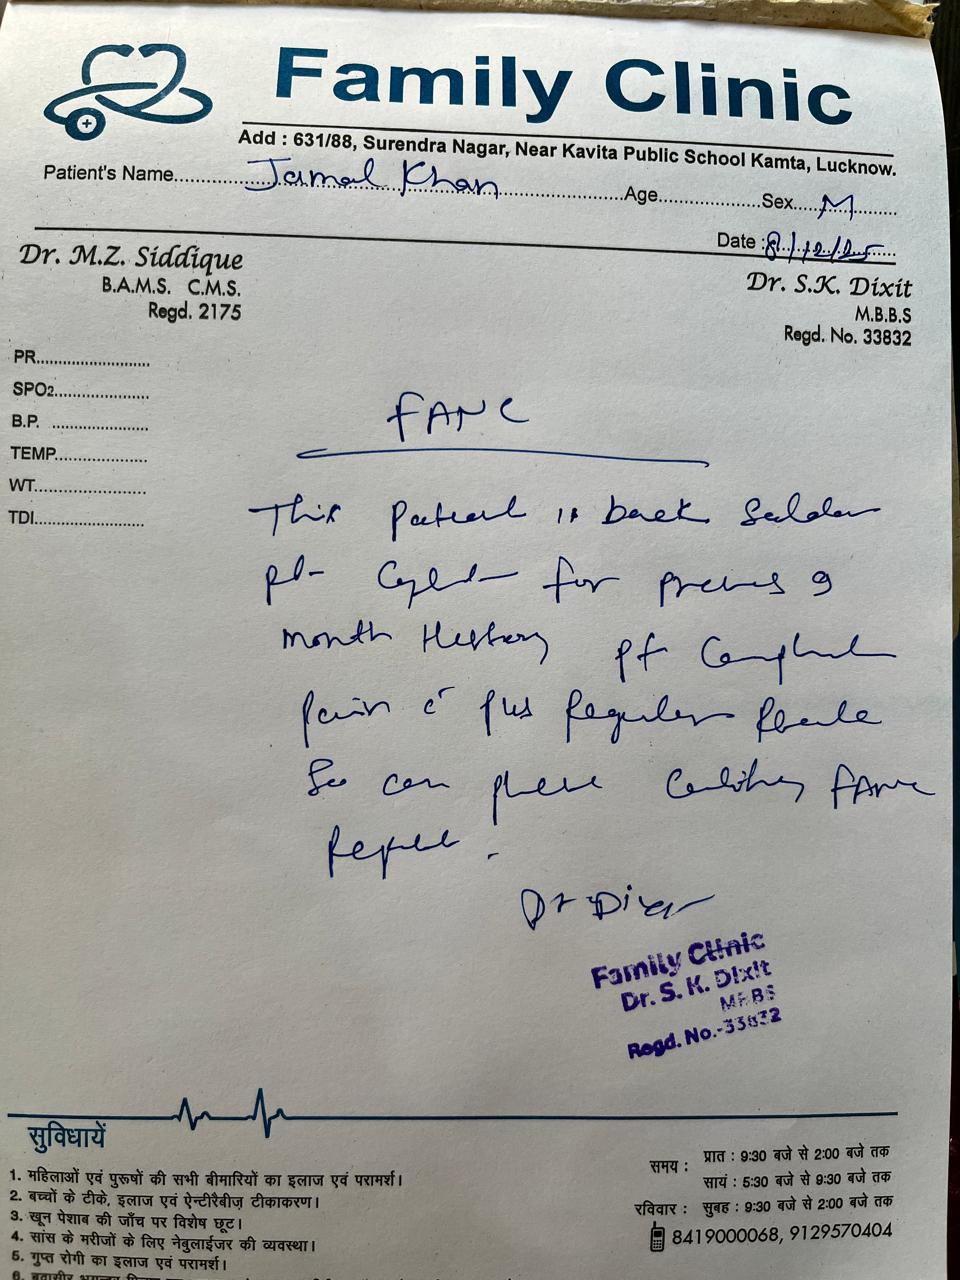 Family Clinic
Add : 631/88, Surendra Nagar, Near Kavita Public School Kamta, Lucknow.
Patient's Name Jamal Khan Age Sex M
Date : 8/12/25
Dr. M.Z. Siddique
B.A.M.S. C.M.S.
Regd. 2175
Dr. S.K. Dixit
M.B.B.S
Regd. No. 33832
PR
SPO2
B.P.
TEMP
WT
TDI
FANC
This Patient is back
for 9
month History pt
pain c̄ pus Regular
So can please FANC
Dr Dixit
Family Clinic
Dr. S. K. Dixit
MBBS
Regd. No.-33832
सुविधायें
1. महिलाओं एवं पुरूषों की सभी बीमारियों का इलाज एवं परामर्श।
2. बच्चों के टीके, इलाज एवं ऐन्टीरैबीज़ टीकाकरण।
3. खून पेशाब की जाँच पर विशेष छूट।
4. सांस के मरीजों के लिए नेबुलाईजर की व्यवस्था।
5. गुप्त रोगी का इलाज एवं परामर्श।
समय : प्रात : 9:30 बजे से 2:00 बजे तक
सायं : 5:30 बजे से 9:30 बजे तक
रविवार : सुबह : 9:30 बजे से 2:00 बजे तक
8419000068, 9129570404